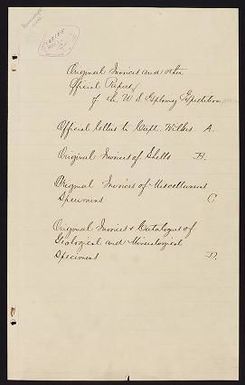 Original Invoices and other
Official Papers
of the U S Exploring Expedition
Official letters to Capt. Wilkes A.
Original Invoices of Shells B.
Original Invoices of Miscellaneous
Specimens C
Original Invoices & Catalogues of
Geological and Mineralogical
Specimens D.